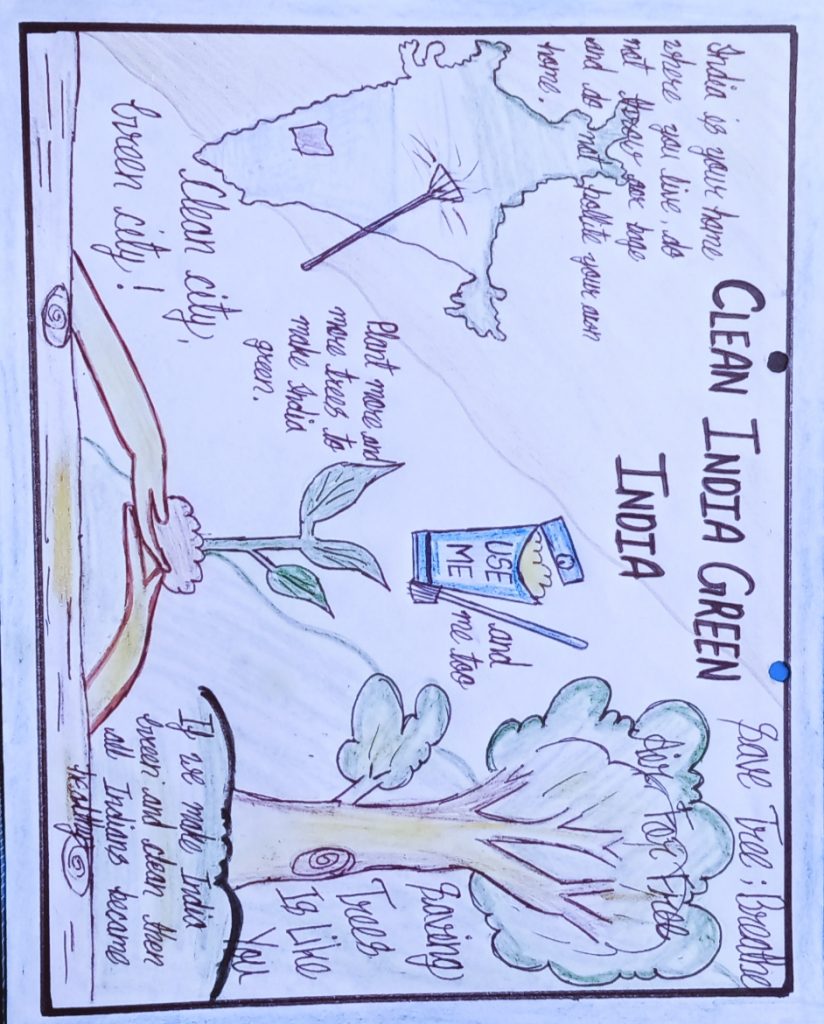 CLEAN INDIA GREEN
INDIA
India is your home
where you live, do
not
and do not pollite your own
home.
Save Tree; Breathe
Tree
USE
ME
and
me too
Plant more and
more trees to
make India
green.
Clean city,
Green city!
Saving
Trees
Is Like
You
If we make India
Green and clean then
all Indians become